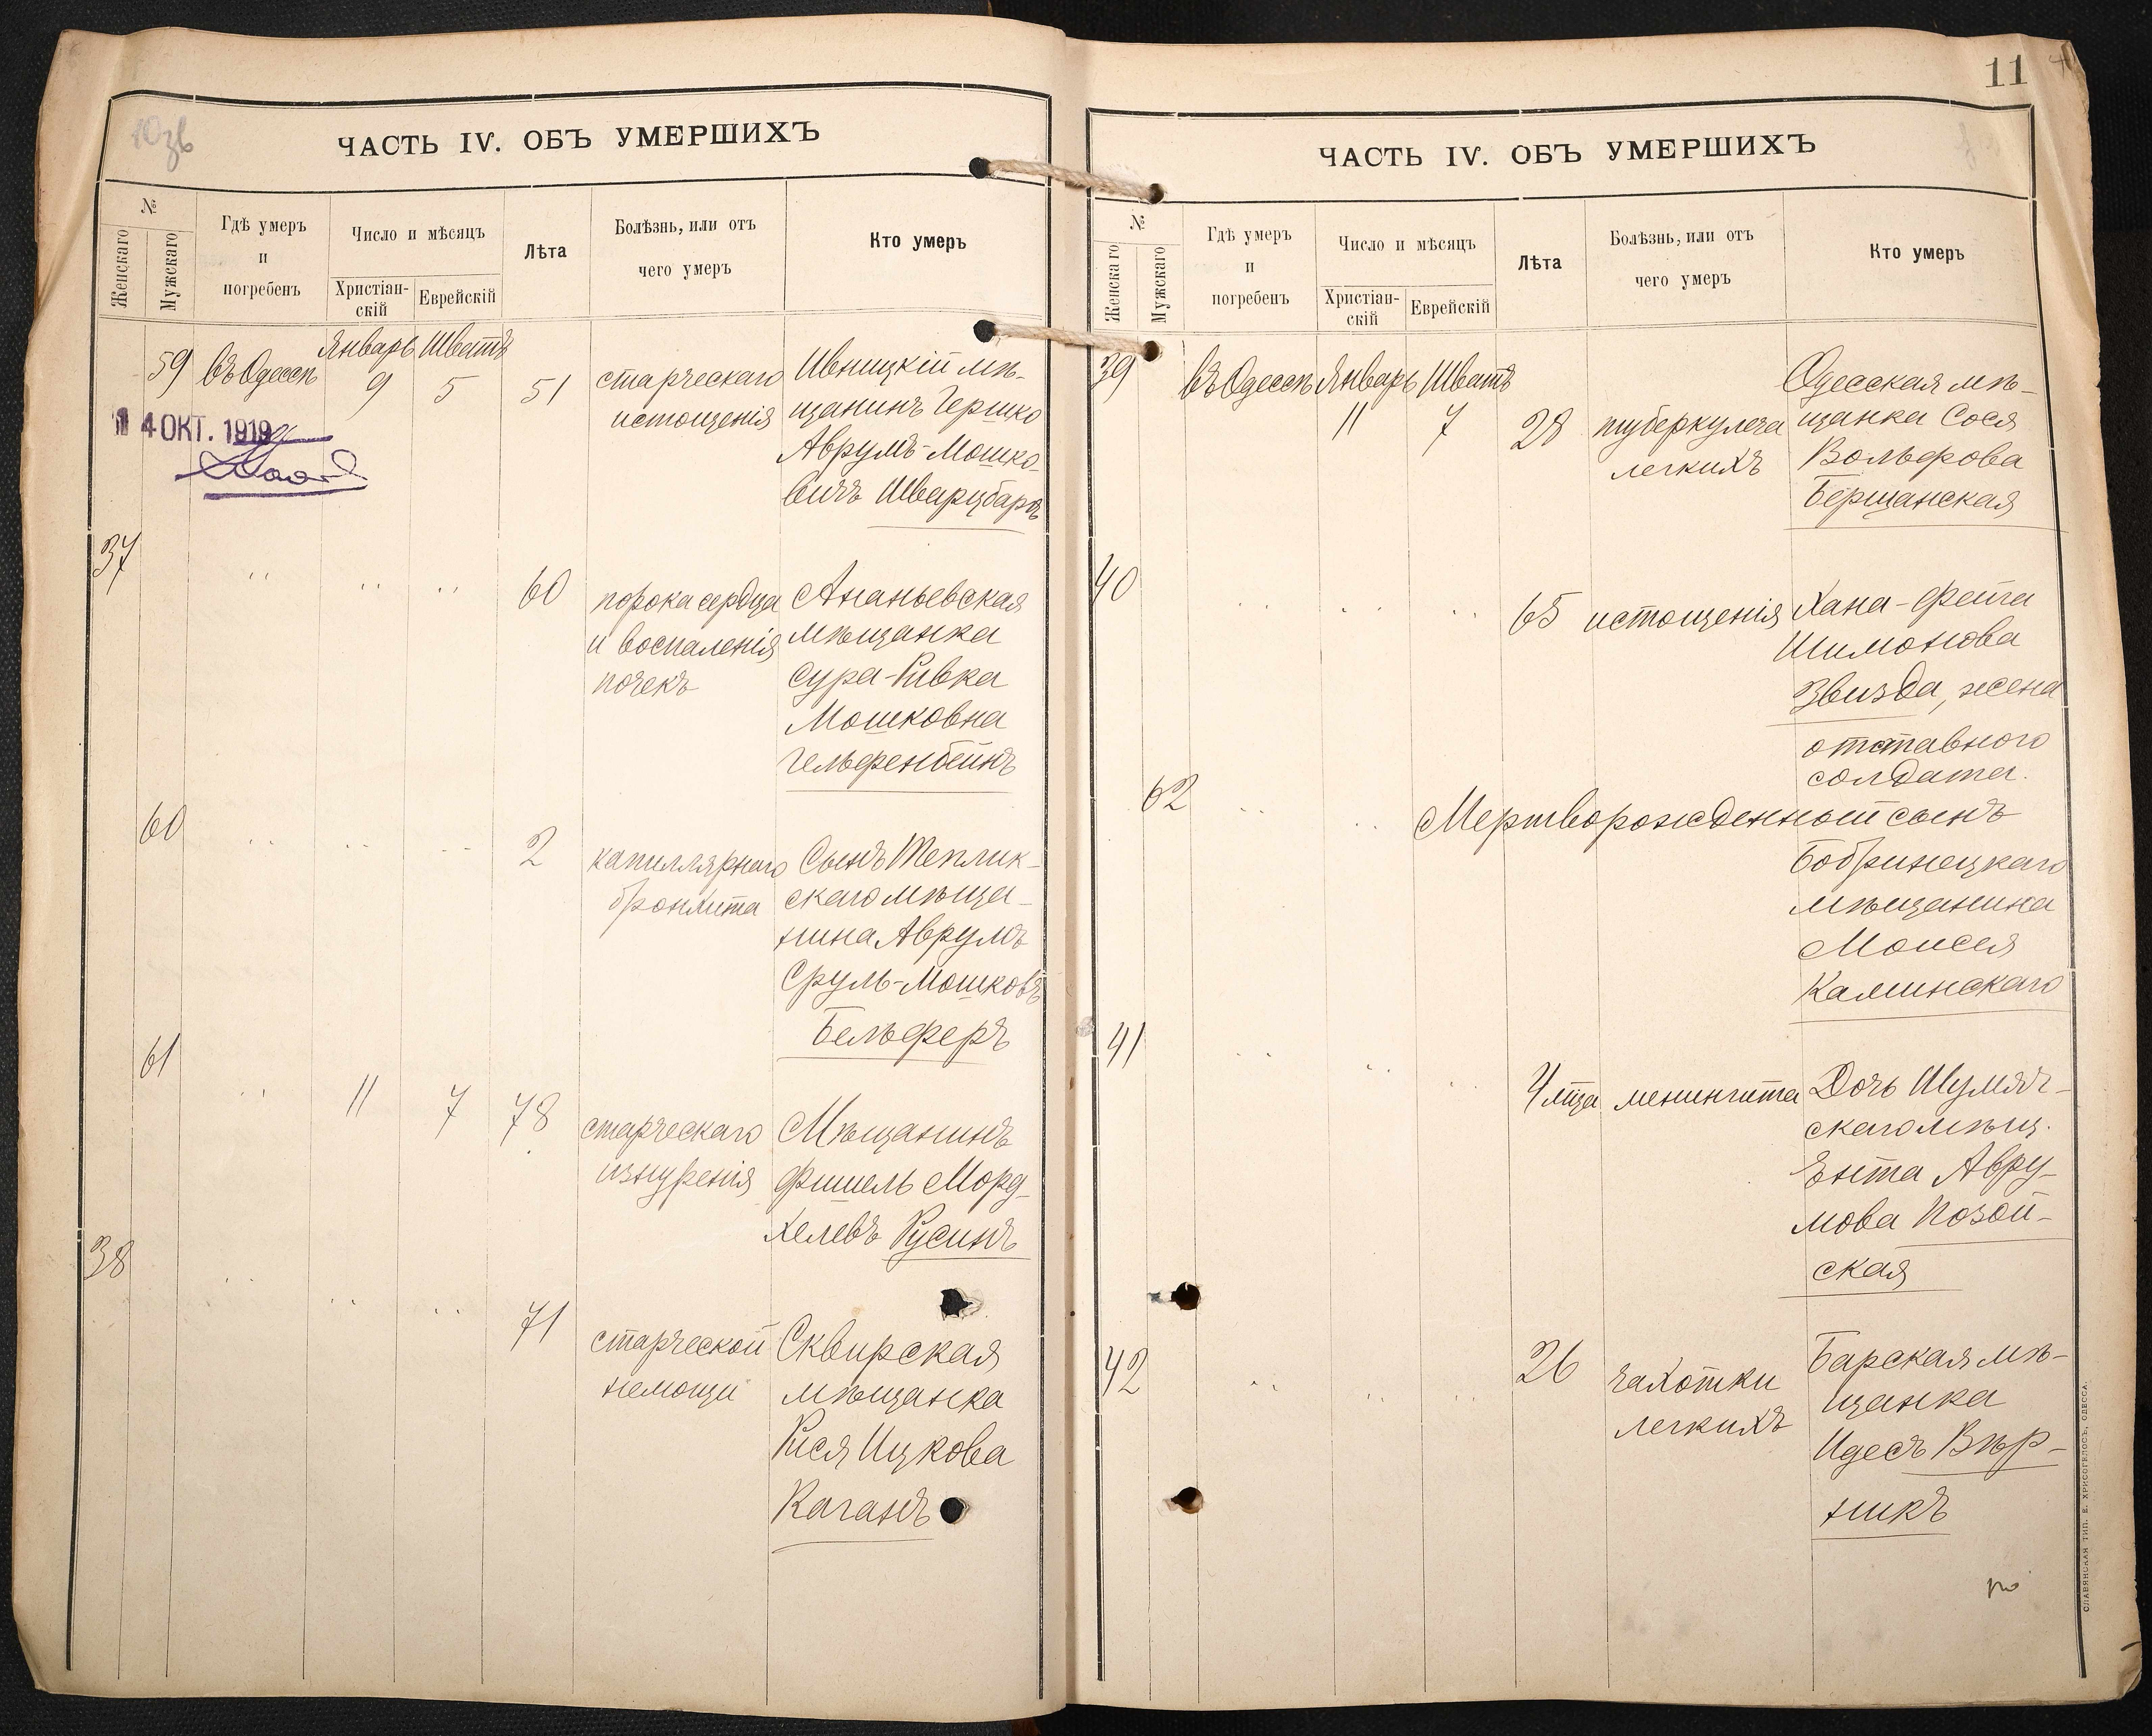 ЧАСТЬ IV. ОБЪ УМЕРШИХЪ
№
Женскаго
Мужскаго
Гдѣ умеръ
и
погребенъ
Число и мѣсяцъ
Христіан-
скій
Еврейскій
Лѣта
Болѣзнь, или отъ
чего умеръ
Кто умеръ
59 въ Одессѣ Январь 9 Шватъ 5 51
старческаго
истощенія
Ивницкій мѣ-
щанинъ Гершко
Аврумъ-Мошко-
вичъ Шварцбардъ
14 ОКТ. 1919
37 " " " 60
порока сердца
и воспаленія
почекъ
Ананьевская
мѣщанка
Сура-Ривка
Мошковна
Гельфенбейнъ
60 " " " 2
капиллярнаго
бронхита
Сынъ Теплик-
скаго мѣща-
нина Аврумъ
Сруль-Мошковъ
Бельферъ
61 " 11 7 78
старческаго
изнуренія
Мѣщанинъ
Фишель Морд-
хелевъ Русинъ
38 " " " 71
старческой
немощи
Сквирская
мѣщанка
Рися Ицкова
Каганъ
11
ЧАСТЬ IV. ОБЪ УМЕРШИХЪ
№
Женскаго
Мужскаго
Гдѣ умеръ
и
погребенъ
Число и мѣсяцъ
Христіан-
скій
Еврейскій
Лѣта
Болѣзнь, или отъ
чего умеръ
Кто умеръ
39 въ Одессѣ Январь 11 Шватъ 7 28
туберкулеза
легкихъ
Одесская мѣ-
щанка Сося
Вольфова
Бершанская
40 " " " 65
истощенія
Хана-Фейга
Шимонова
Звизда, жена
отставного
солдата.
62 " "
Мертворожденный сынъ
Бобринецкаго
мѣщанина
Моисея
Каминскаго
41 " " " 4 мца
менингита
Дочь Шумяч-
скаго мѣщ.
Энта Авру-
мова Позой-
ская
42 " " " 26
чахотки
легкихъ
Барская мѣ-
щанка
Идесъ Вѣр-
никъ
СЛАВЯНСКАЯ ТИП. Е. ХРИСОГЕЛОСЪ, ОДЕССА.